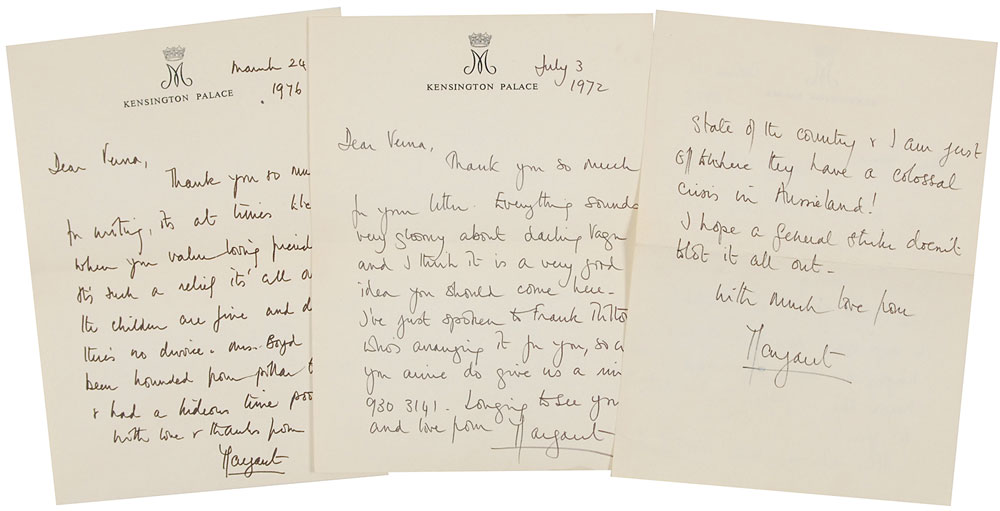 M
KENSINGTON PALACE
March 24
1976
Dear Verna,
Thank you so mu
for writing, it's at times like
when you value loving friend
It's such a relief it's all o
the children are fine and
there's no divorce. Mrs. Boyd
been hounded from pillar t
& had a hideous time poo
with love & thanks from
Margaret
M
KENSINGTON PALACE
July 3
1972
Dear Verna,
Thank you so much
for your letter. Everything sounds
very gloomy about darling
and I think it is a very good
idea you should come here.
I've just spoken to Frank
who's arranging it for you, so
you arrive do give us a
930 3141. Longing to see you
and love from Margaret
State of the country & I am just
off to where they have a colossal
crisis in Aussieland!
I hope a general strike doesn't
blot it all out.
with much love from
Margaret